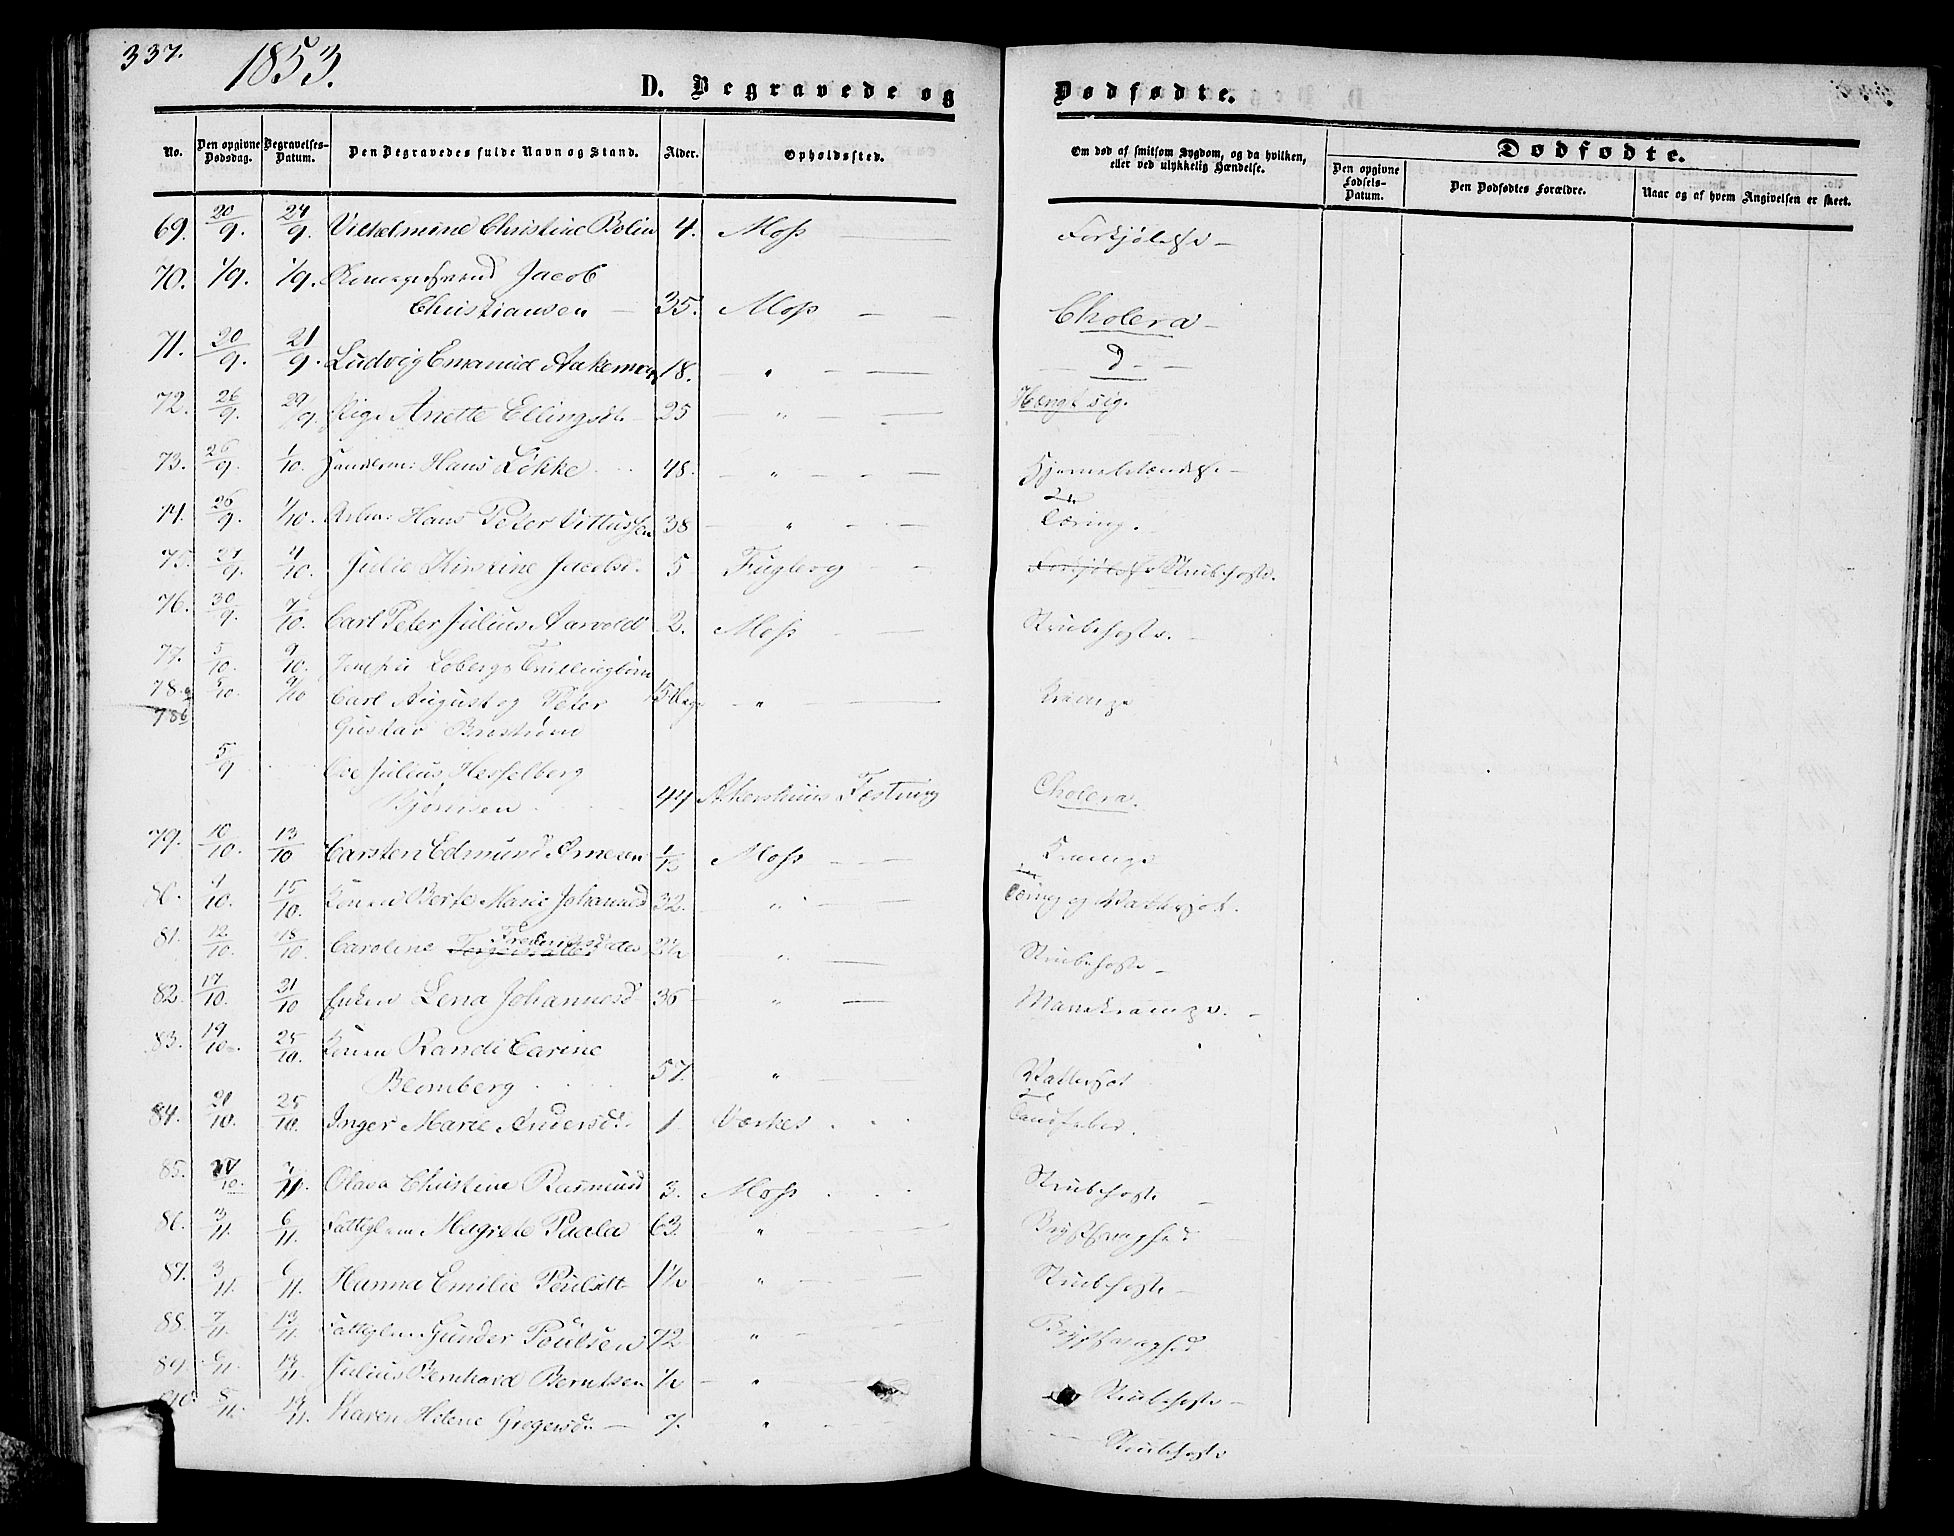 337.
1853.
D. Begravede og
Dødfødte.
No.
Den opgivne Dødsdag.
Begravelses-Datum.
Den Begravedes fulde Navn og Stand.
Alder.
Opholdssted.
Om død af smitsom Sygdom, og da hvilken, eller ved ulykkelig Hændelse.
Dødfødte.
Den opgivne Fødsels-Datum.
Den Dødfødtes Forældre.
Naar og af hvem Angivelsen er skeet.
69. 20/9. 24/9. Vilhelmine Christine Bolin 4. Moss — Forkjølelse —
70. 1/9. 1/9. Jacob
Christiansen — 35. Moss — — Cholera —
71. 20/9. 21/9. Ludvig Emanuel Aakeman 18. — " — — D —
72. 26/9. 29/9. Pige Anette Ellingsdt. 25 — " — — Hængt sig.
73. 26/9. 1/10. Hans Løkke 48. — " — — —
74. 26/9. 1/10. Arbm: Hans Peter Vittussen 38 — " — — Tæring.
75. 29/9. 4/10. Julie Kirstine Jacobsd. 5 Fuglevig — — Forkjølelse Strubehoste.
76. 30/9. 7/10. Carl Peter Julius Aarvold 2. Moss — — Strubehoste. —
77. 5/10. 9/10. Lobergs Tvillingbørn
78.a 5/10. 9/10 Carl August og Peter 15 Dage — " — — Krampe
78b Gustav
5/9 Ove Julius Hesselberg
Bjørnsen 44 Akershuus Festning Cholera.
79. 10/10. 13/10 Carsten Edmund Arnesen 1/12 Moss — — — Krampe
80. /10. 15/10. Konen Berte Marie Johannesd 32. — " — — Tæring og Vattersot.
81. 12/10. 18/10. Caroline Fredriksdatter 2½ — " — Strubehoste —
82. 17/10. 21/10 Enken Lena Johannesd 36 — " — — Mavekrampe. —
83. 19/10. 25/10. Konen Randi Carine
Blomberg 57. — " — Vattersot
84. 21/10. 25/10. Inger Marie Andersdt. 1 Værket . . . Tandfeber.
85. 27/10. /11. Olava Christine Rasmusd 3. Moss . . . Strubehoste —
86. 3/11. 6/11. Fattiglem Magrete Paala 63. — " — — Brystsvaghed —
87. 3/11. 6/11. Hanna Emilie Poulsdt 1½ — " — — Strubehoste —
88. 7/11. 13/11. Fattiglem Gunder Poulsen 72 — " — — Brystsvaghed
89. 6/11. 13/11. Julius Bernhard Berntsen ½ — " — Strubehoste —
90. 8/11. 13/11. Karen Helene Gregersdt. — 7. " — Strubehoste